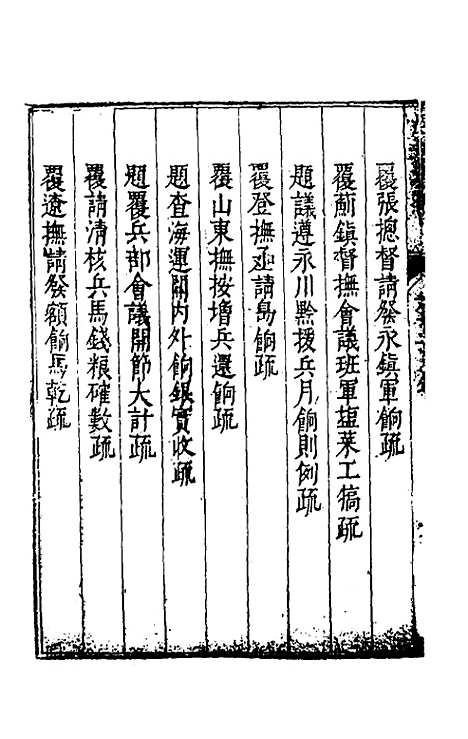 覆張摠督請發永鎮軍餉疏
覆薊鎮督撫會議班軍塩菜工犒疏
題議遵永川黔援兵月餉則例疏
覆登撫並請島餉疏
覆山東撫按增兵還餉疏
題查海運關内外餉銀實收疏
題覆兵部會議開節大計疏
覆請清核兵馬錢粮確數疏
覆遼撫請發額餉馬乾疏